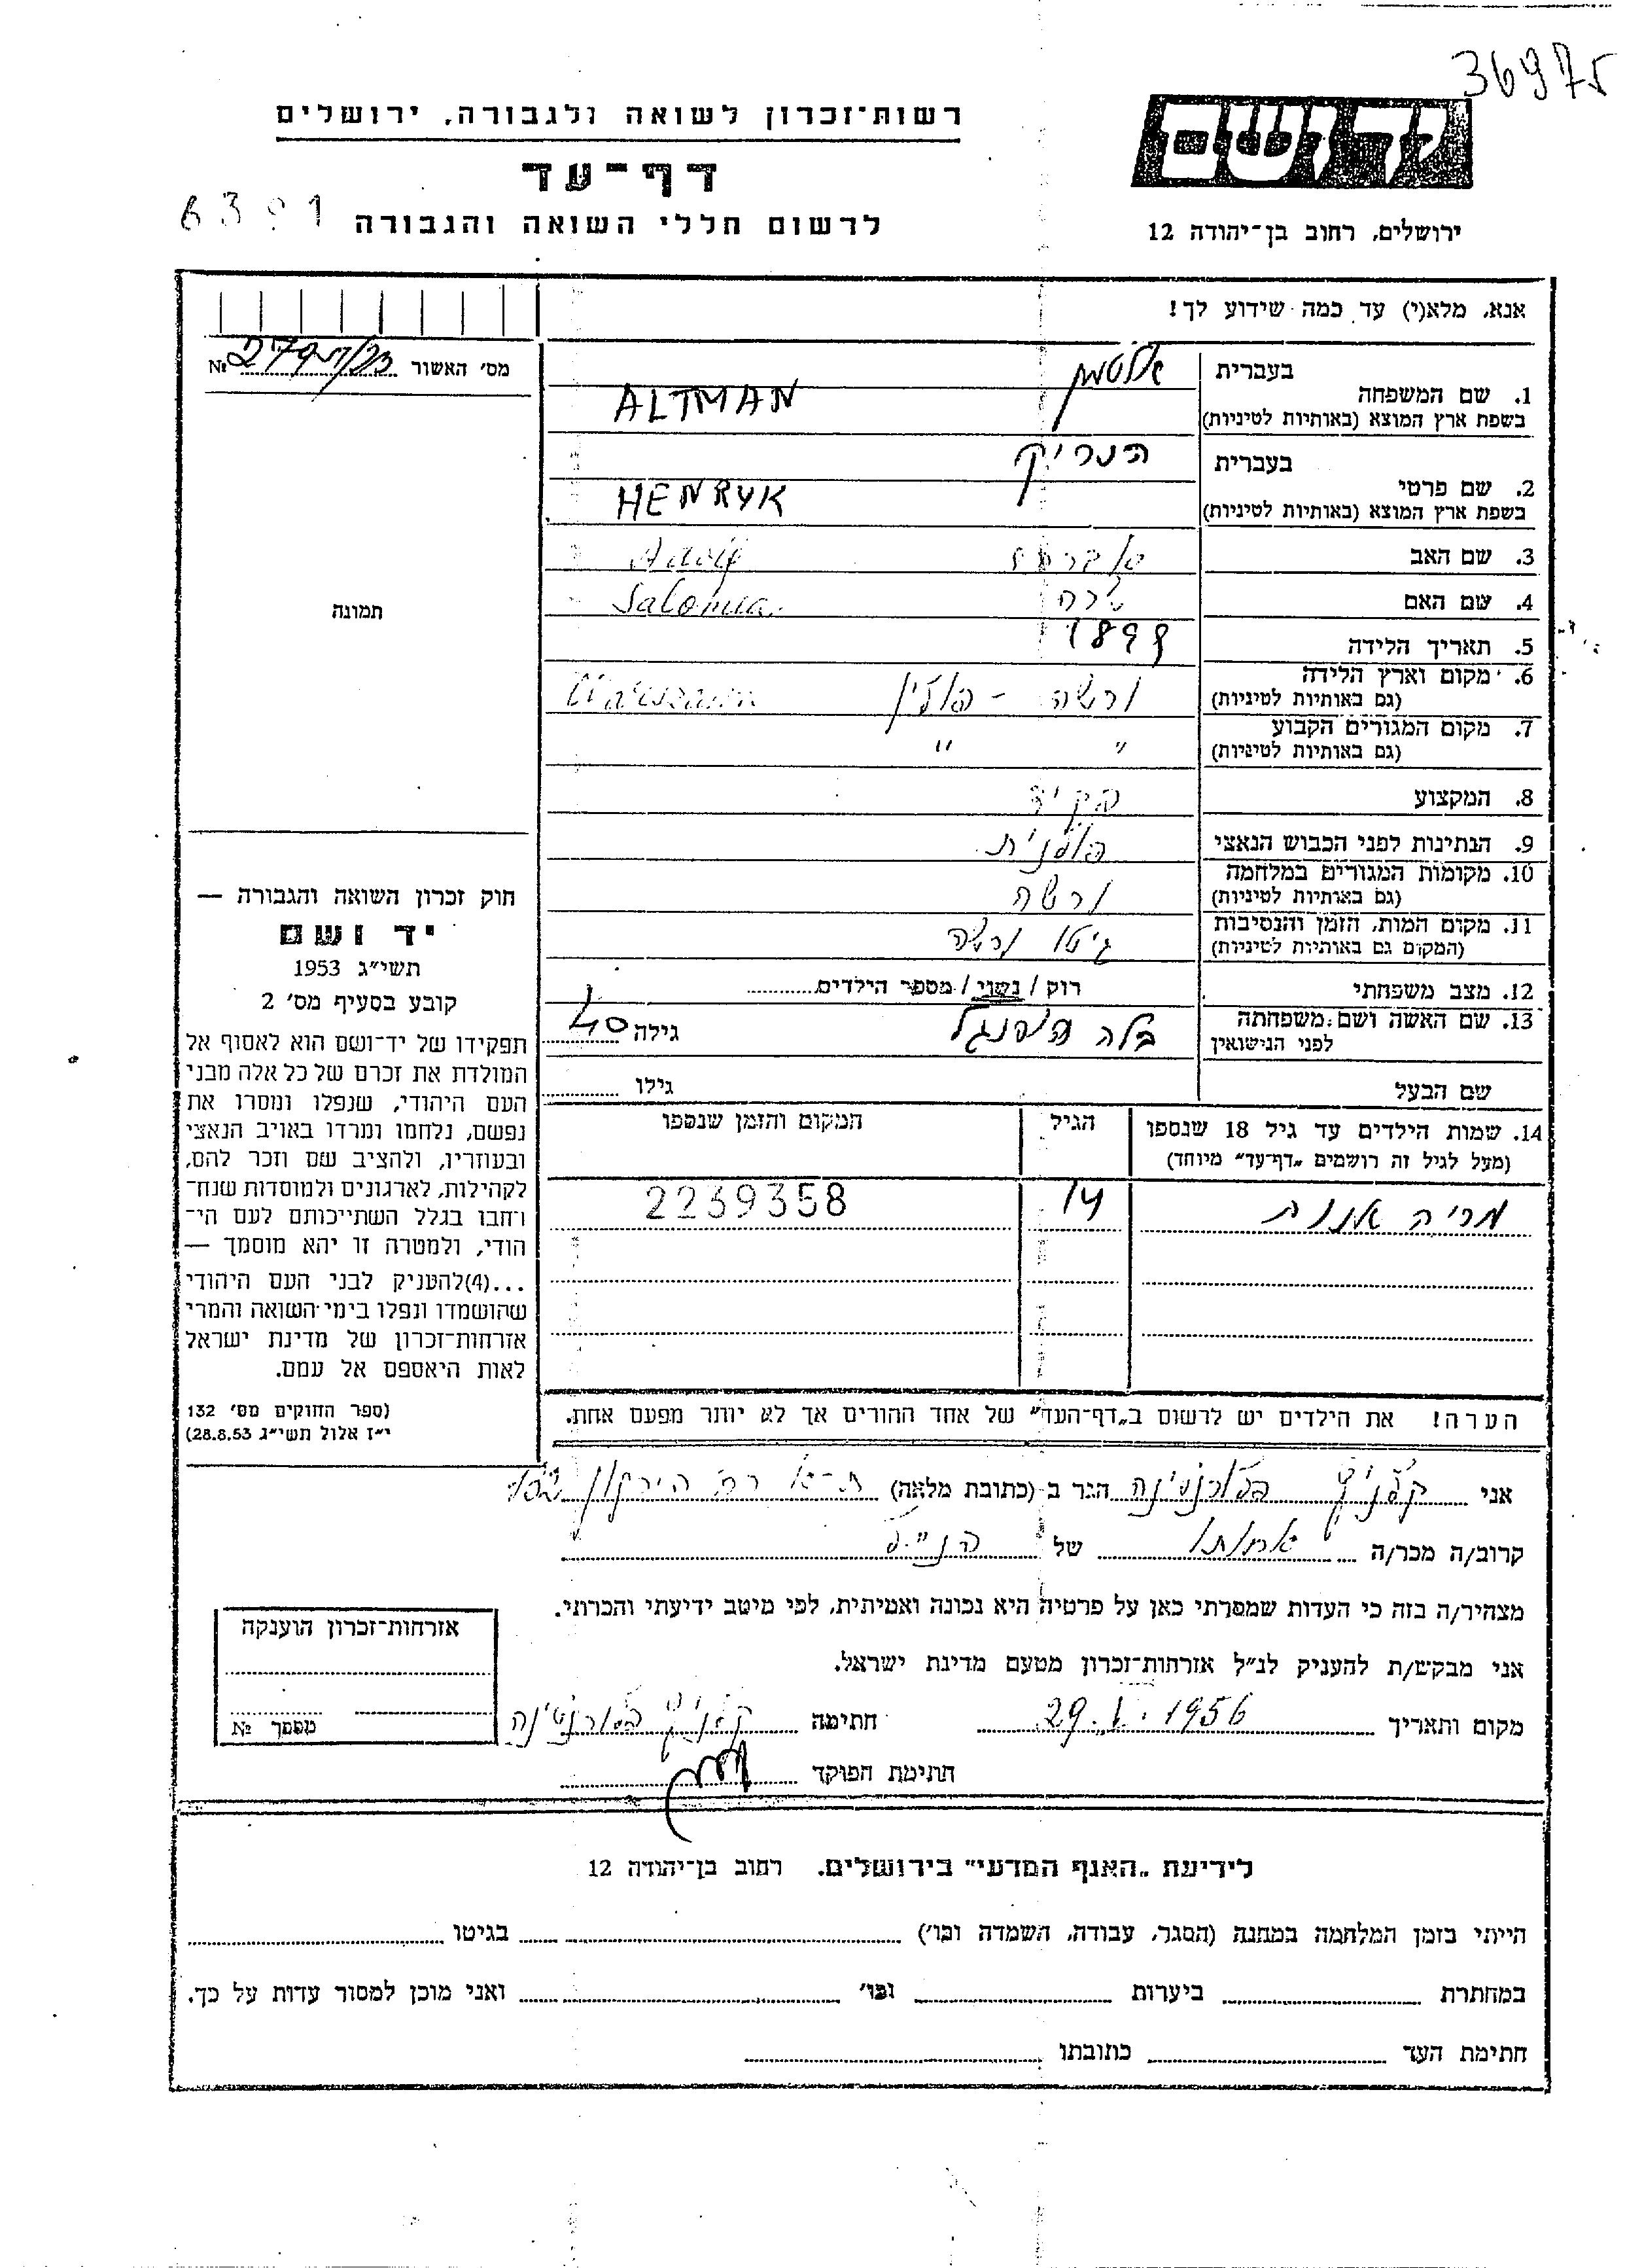 36975
רשות־זכרון לשואה ולגבורה, ירושלים
ידושם
דף־עד
לרשום חללי השואה והגבורה
ירושלים, רחוב בן־יהודה 12
אנא, מלא(י) עד כמה שידוע לך!
מס' האשור №
1. שם המשפחה
בעברית אלטמן
בשפת ארץ המוצא (באותיות לטיניות) ALTMAN
2. שם פרטי
בעברית הנריק
בשפת ארץ המוצא (באותיות לטיניות) HENRYK
3. שם האב אברהם Adolf
4. שם האם שרה Salomea
5. תאריך הלידה 1899
6. מקום וארץ הלידה ורשה - פולין Warszawa
(גם באותיות לטיניות)
7. מקום המגורים הקבוע " "
(גם באותיות לטיניות)
8. המקצוע פקיד
9. הנתינות לפני הכבוש הנאצי פולנית
10. מקומות המגורים במלחמה ורשה
(גם באותיות לטיניות)
11. מקום המות, הזמן והנסיבות גיטו ורשה
(המקום גם באותיות לטיניות)
12. מצב משפחתי רוק / נשוי / מספר הילדים
13. שם האשה ושם משפחתה בלה גילה 40
לפני הנישואין
שם הבעל גילו
14. שמות הילדים עד גיל 18 שנספו הגיל המקום והזמן שנספו
(מעל לגיל זה רושמים „דף־עד" מיוחד)
מריה אננת 14 2239358
תמונה
חוק זכרון השואה והגבורה —
יד ושם
תשי"ג 1953
קובע בסעיף מס' 2
תפקידו של יד־ושם הוא לאסוף אל
המולדת את זכרם של כל אלה מבני
העם היהודי, שנפלו ומסרו את
נפשם, נלחמו ומרדו באויב הנאצי
ובעוזריו, ולהציב שם וזכר להם,
לקהילות, לארגונים ולמוסדות שנח־
רחבו בגלל השתייכותם לעם הי־
הודי, ולמטרה זו יהא מוסמך —
...(4)להעניק לבני העם היהודי
שהושמדו ונפלו בימי השואה והמרי
אזרחות־זכרון של מדינת ישראל
לאות היאספם אל עמם.
(ספר החוקים מס' 132
י"ז אלול תשי"ג 28.8.53)
הערה! את הילדים יש לרשום ב„דף־העד" של אחד ההורים אך לא יותר מפעם אחת.
אני פלורנטינה הגר ב־(כתובת מלאה) ת-א רח' הירקון
קרוב/ה מכר/ה אחותו של הנ"ל
מצהיר/ה בזה כי העדות שמסרתי כאן על פרטיה היא נכונה ואמיתית, לפי מיטב ידיעתי והכרתי.
אני מבקש/ת להעניק לנ"ל אזרחות־זכרון מטעם מדינת ישראל.
מקום ותאריך 29.V.1956 חתימה פלורנטינה
חתימת הפוקד
אזרחות־זכרון הוענקה
מספר №
לידיעת „האגף המדעי" בירושלים. רחוב בן־יהודה 12
הייתי בזמן המלחמה במחנה (הסגר, עבודה, השמדה וכו') בגיטו
במחתרת ביערות וכו' ואני מוכן למסור עדות על כך.
חתימת העד כתובתו